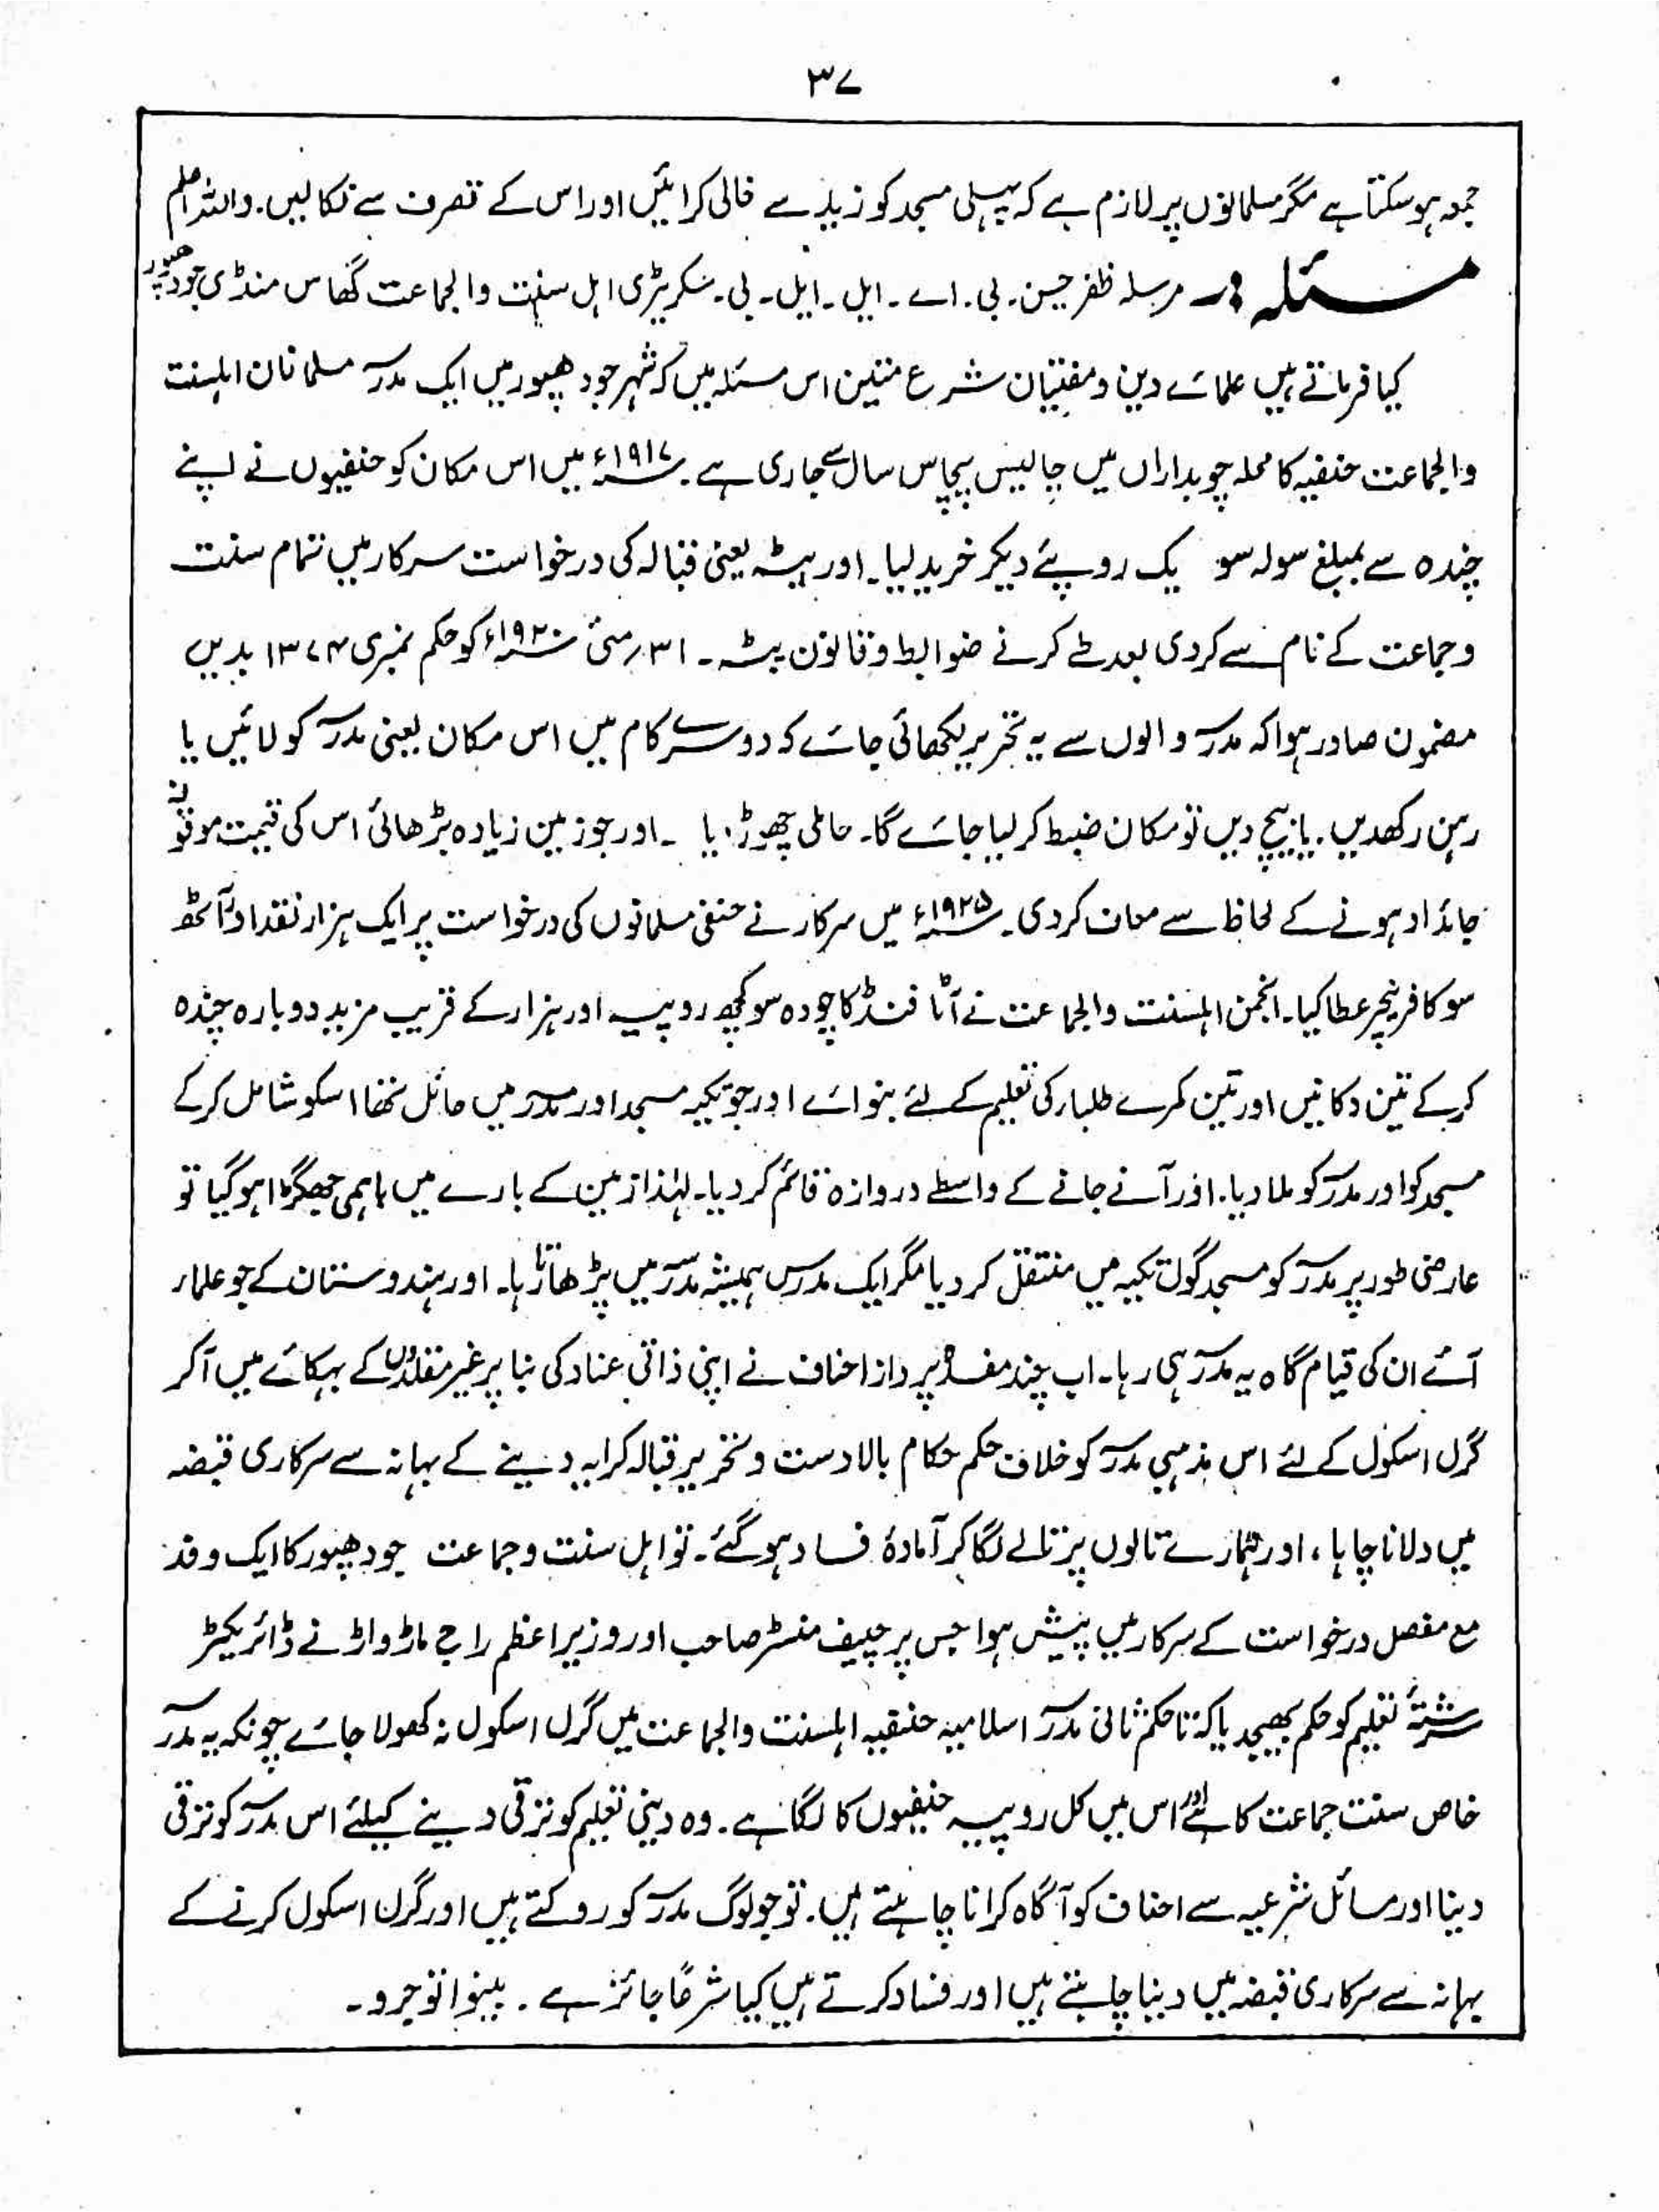 ۳۷
جمعہ ہوسکتا ہے مگر مسلمانوں پر لازم ہے کہ پہلی مسجد کو زید سے خالی کرائیں اور اس کے تصرف سے نکالیں۔ واللہ اعلم
مسئلہ :۔ مرسلہ ظفر حسین۔ بی۔ اے۔ ایل۔ ایل۔ بی۔ سکریٹری اہل سنت والجماعت گھاس منڈی جودھپور
کیا فرماتے ہیں علمائے دین و مفتیان شرع متین اس مسئلہ میں کہ شہر جودھپور میں ایک مدرسہ مسلمانان اہلسنت
والجماعت حنفیہ کا محلہ چوبداراں میں چالیس پچاس سال سے جاری ہے۔ ۱۹۱۷ء میں اس مکان کو حنفیوں نے اپنے
چندہ سے بمبلغ سولہ سو یک روپئے دیکر خرید لیا۔ اور پٹہ یعنی قبالہ کی درخواست سرکار میں تمام سنت
وجماعت کے نام سے کردی بعد طے کرنے ضوابط وقانون پٹہ۔ ۳۱؍مئی ۱۹۲۰ء کو حکم نمبری ۱۳۷۴ بدیں
مضمون صادر ہوا کہ مدرسہ والوں سے یہ تحریر لکھائی جائے کہ دوسرے کام میں اس مکان یعنی مدرسہ کو لائیں یا
رہن رکھدیں۔ یا بیچ دیں تو مکان ضبط کر لیا جائے گا۔ حاملی چھوڑ دیا ۔ اور جو زمین زیادہ بڑھائی اس کی قیمت موقوفہ
جائداد ہونے کے لحاظ سے معاف کردی۔ ۱۹۲۵ء میں سرکار نے حنفی مسلمانوں کی درخواست پر ایک ہزار نقد اور آٹھ
سو کا فرنیچر عطا کیا۔ انجمن اہلسنت والجماعت نے آٹا فنڈ کا چودہ سو کچھ روپیہ اور ہزار کے قریب مزید دوبارہ چندہ
کرکے تین دکانیں اور تین کمرے طلبار کی تعلیم کے لئے بنوائے اور جو تکیہ مسجد اور مدرسہ میں حائل تھا اسکو شامل کرکے
مسجد کو اور مدرسہ کو ملا دیا۔ اور آنے جانے کے واسطے دروازہ قائم کردیا۔ لہٰذا زمین کے بارے میں باہمی جھگڑا ہوگیا تو
عارضی طور پر مدرسہ کو مسجد گول تکیہ میں منتقل کردیا مگر ایک مدرس ہمیشہ مدرسہ میں پڑھاتا رہا۔ اور ہندوستان کے جو علمار
آئے ان کی قیام گاہ یہ مدرسہ ہی رہا۔ اب چند مفسدہ پرداز احناف نے اپنی ذاتی عناد کی بنا پر غیر مقلدوں کے بہکائے میں آکر
گرل اسکول کے لئے اس مذہبی مدرسہ کو خلاف حکم حکام بالادست و تحریر قبالہ کرایہ دینے کے بہانہ سے سرکاری قبضہ
میں دلانا چاہا، اور ہمارے تالوں پر تالے لگا کر آمادۂ فساد ہوگئے۔ تو اہل سنت وجماعت جودھپور کا ایک وفد
مع مفصل درخواست کے سرکار میں پیش ہوا جس پر چیف منسٹر صاحب اور وزیر اعظم راج ماڑواڑ نے ڈائریکٹر
سررشتۂ تعلیم کو حکم بھیجدیا کہ تا حکم ثانی مدرسہ اسلامیہ حنفیہ اہلسنت والجماعت میں گرل اسکول نہ کھولا جائے چونکہ یہ مدرسہ
خاص سنت جماعت کا ہے اور اس میں کل روپیہ حنفیوں کا لگا ہے۔ وہ دینی تعلیم کو ترقی دینے کیلئے اس مدرسہ کو ترقی
دینا اور مسائل شرعیہ سے احناف کو آگاہ کرانا چاہتے ہیں۔ تو جو لوگ مدرسہ کو روکتے ہیں اور گرل اسکول کرنے کے
بہانہ سے سرکاری قبضہ میں دینا چاہتے ہیں اور فساد کرتے ہیں کیا شرعًا جائز ہے۔ بینوا توجرو۔